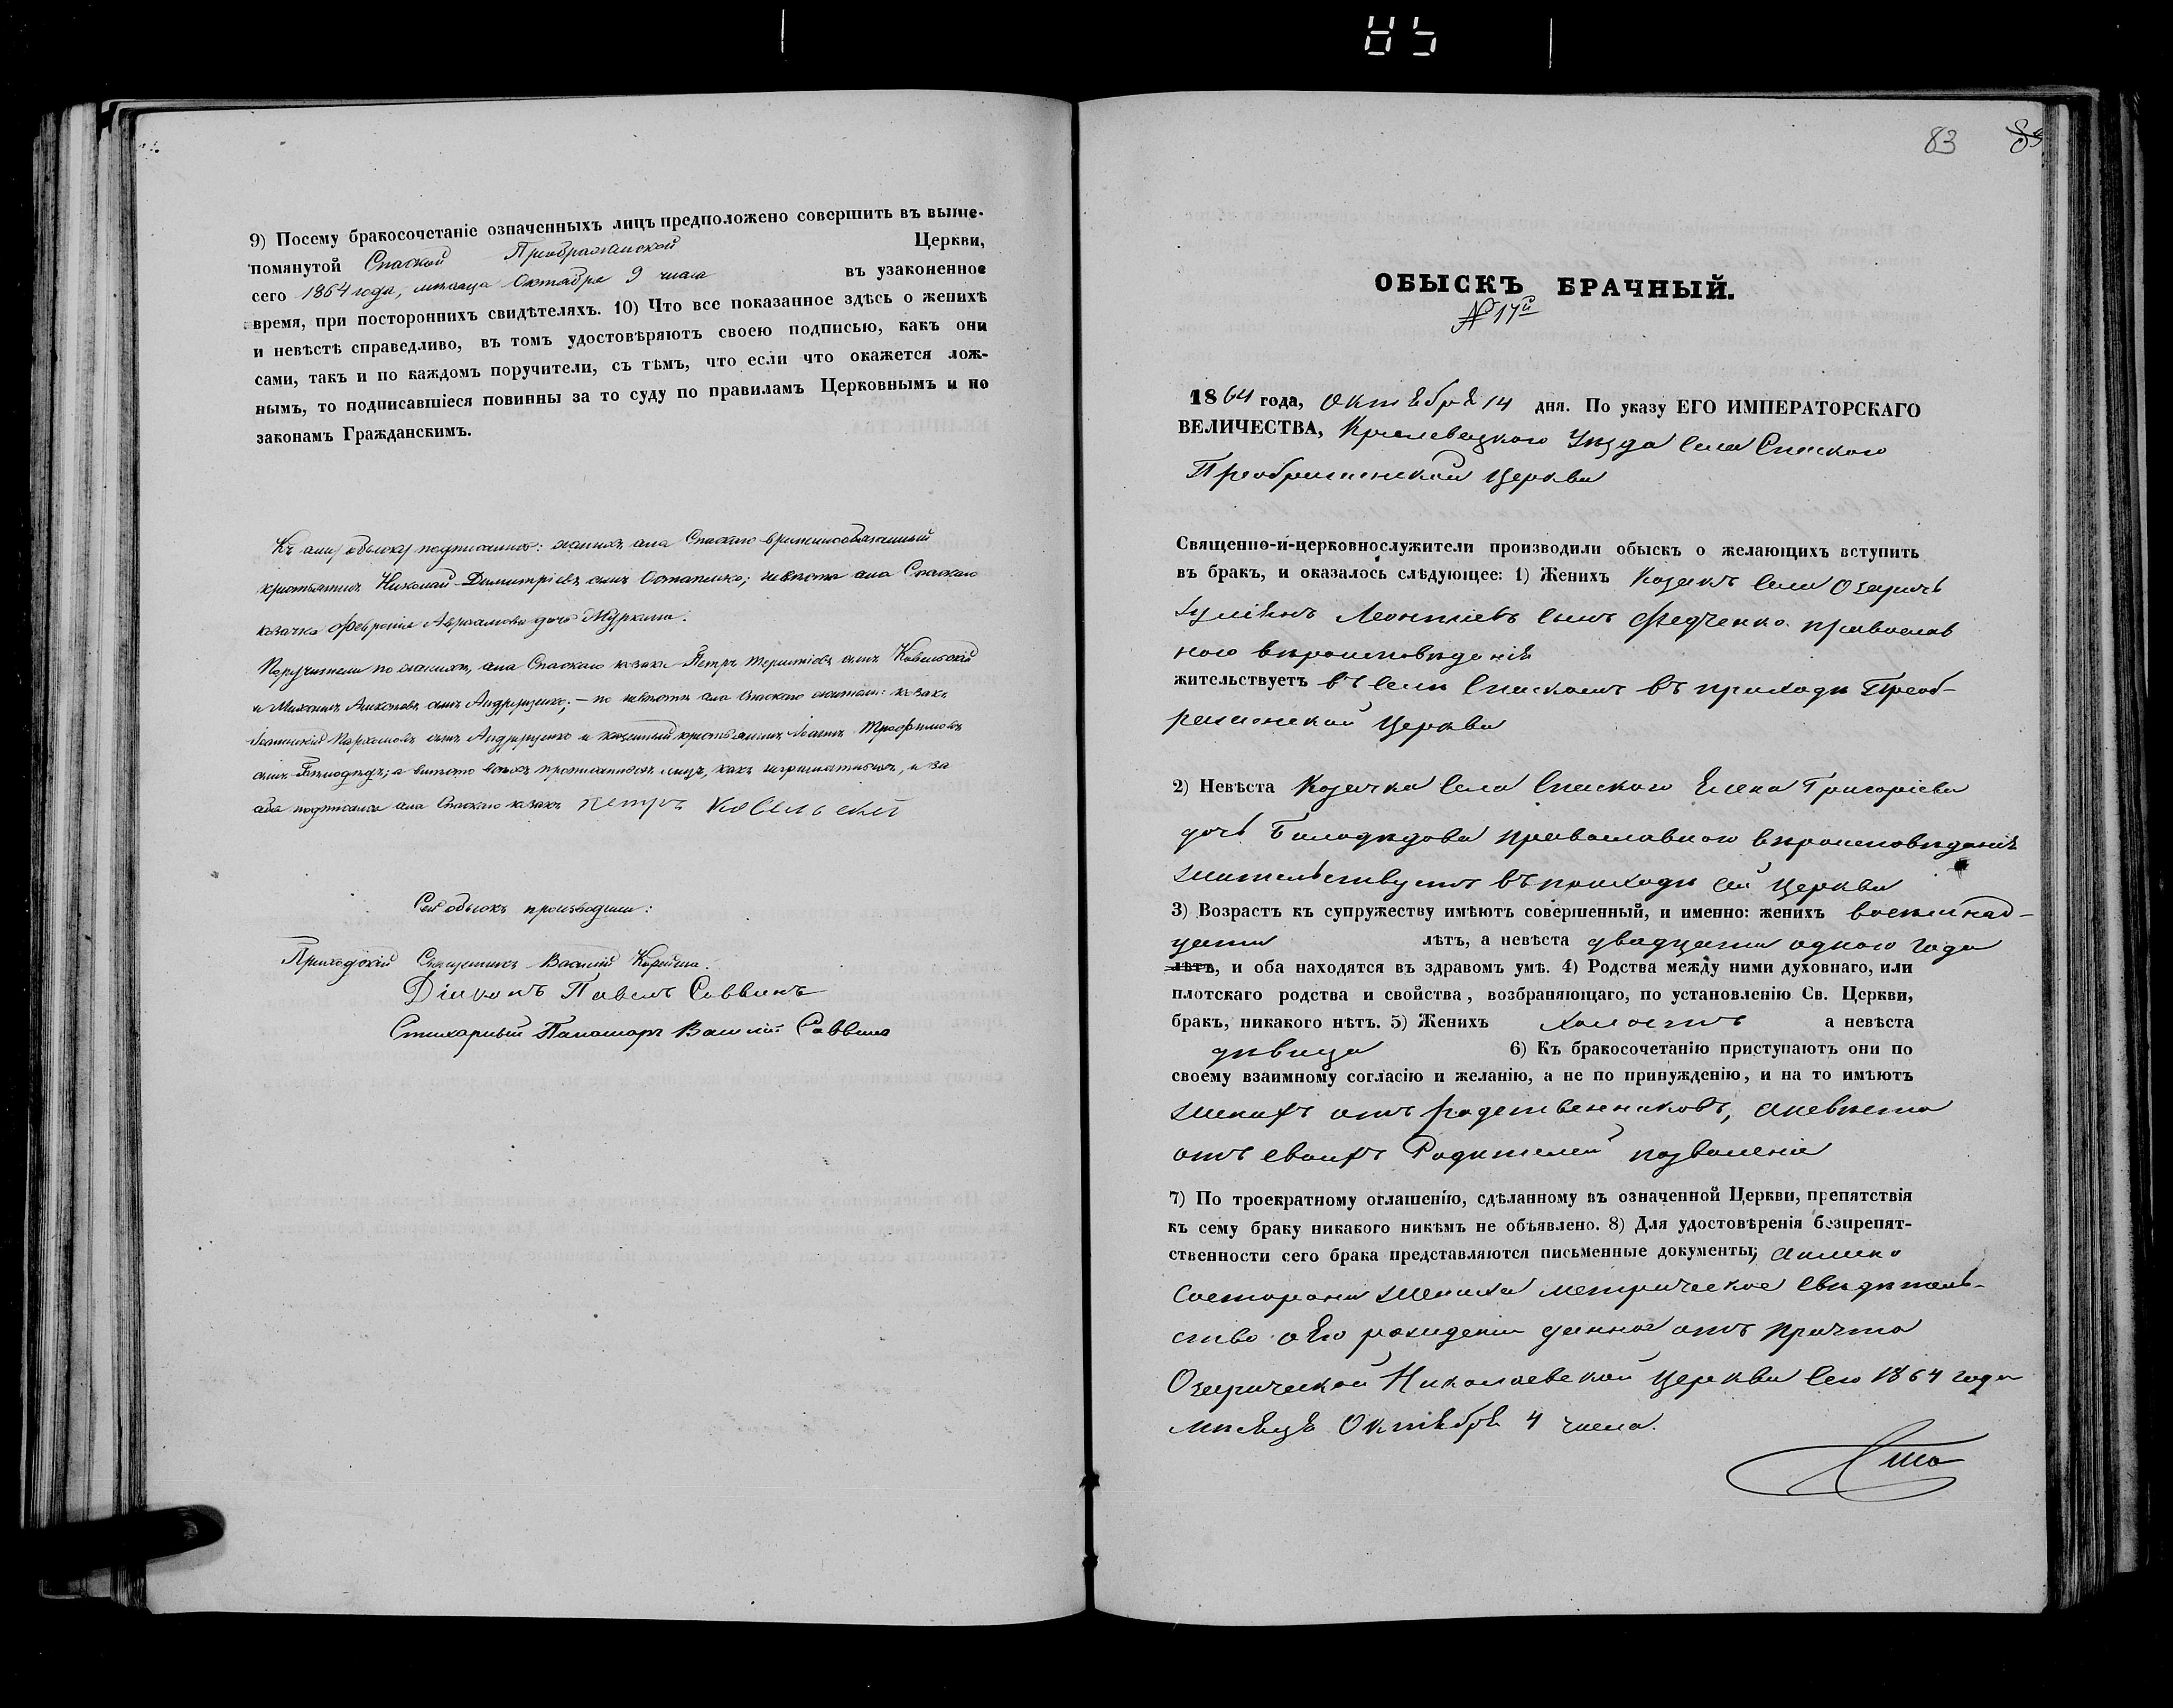 85
9) Посему бракосочетаніе означенныхъ лицъ предположено совершить въ выше-
помянутой Спаской Преображенской Церкви,
сего 1864 года, мѣсяца Октября 9 числа въ узаконенное
время, при постороннихъ свидѣтеляхъ. 10) Что все показанное здѣсь о женихѣ
и невѣстѣ справедливо, въ томъ удостовѣряютъ своею подписью, какъ они
сами, такъ и по каждомъ поручители, съ тѣмъ, что если что окажется лож-
нымъ, то подписавшіеся повинны за то суду по правиламъ Церковнымъ и по
законамъ Гражданскимъ.
Къ сему обыску подписались: женихъ села Спаскаго временнообязанный
крестьянинъ Николай Димитріевъ сынъ Остапенко; невѣста села Спаскаго
казачка Февронія Авраамова дочь
Поручители по женихѣ, села Спаскаго казаки Петръ Терентіевъ сынъ Ковельскій
и Михаилъ сынъ Андрущенко; – по невѣстѣ села Спаскаго жители: казакъ
Пархомовъ сынъ Андрущенко и казенный крестьянинъ Іоаннъ Трофимовъ
сынъ Бѣлодѣдъ; а вмѣсто всѣхъ прописанныхъ лицъ, какъ неграмотныхъ, и за
себя подписался села Спаскаго казакъ Петръ Ковельскій
Сей обыскъ производили:
Приходскій Священникъ Василій
Діаконъ Павелъ Саввинъ
Стихарный Панамарь Василій Саввинъ
83
ОБЫСКЪ БРАЧНЫЙ.
№ 17й
1864 года, Октября 14 дня. По указу ЕГО ИМПЕРАТОРСКАГО
ВЕЛИЧЕСТВА, Кролевецкого Уѣзда Села Спаского
Преображенской Церкви
Священно-и-церковнослужители производили обыскъ о желающихъ вступить
въ бракъ, и оказалось слѣдующее: 1) Женихъ Козакъ Села Озаричъ
Леонтіевъ Сынъ Федченко православ
ного вѣроисповѣданія
жительствуетъ въ Селѣ Спаскомъ въ приходѣ Преоб-
раженской Церкви
2) Невѣста Козачка Села Спаского Елена Григоріева
дочь Билодѣдова православного вѣроисповѣданія
жительствуетъ въ приходѣ сей Церкви
3) Возрастъ къ супружеству имѣютъ совершенный, и именно: женихъ восемнад-
цати лѣтъ, а невѣста двадцати одного года
лѣтъ, и оба находятся въ здравомъ умѣ. 4) Родства между ними духовнаго, или
плотскаго родства и свойства, возбраняющаго, по установленію Св. Церкви,
бракъ, никакого нѣтъ. 5) Женихъ холостъ а невѣста
дѣвица 6) Къ бракосочетанію приступаютъ они по
своему взаимному согласію и желанію, а не по принужденію, и на то имѣютъ
женихъ отъ родственниковъ, а невѣста
отъ своихъ Родителей позволеніе
7) По троекратному оглашенію, сдѣланному въ означенной Церкви, препятствія
къ сему браку никакого никѣмъ не объявлено. 8) Для удостовѣренія безпрепят-
ственности сего брака представляются письменные документы; аимено
состороны жениха метрическое Свидѣтель-
ство оего рожденіи данное отъ причта
Озарической Николаевской Церкви Сего 1864 года
мѣсяца Октября 4 числа.